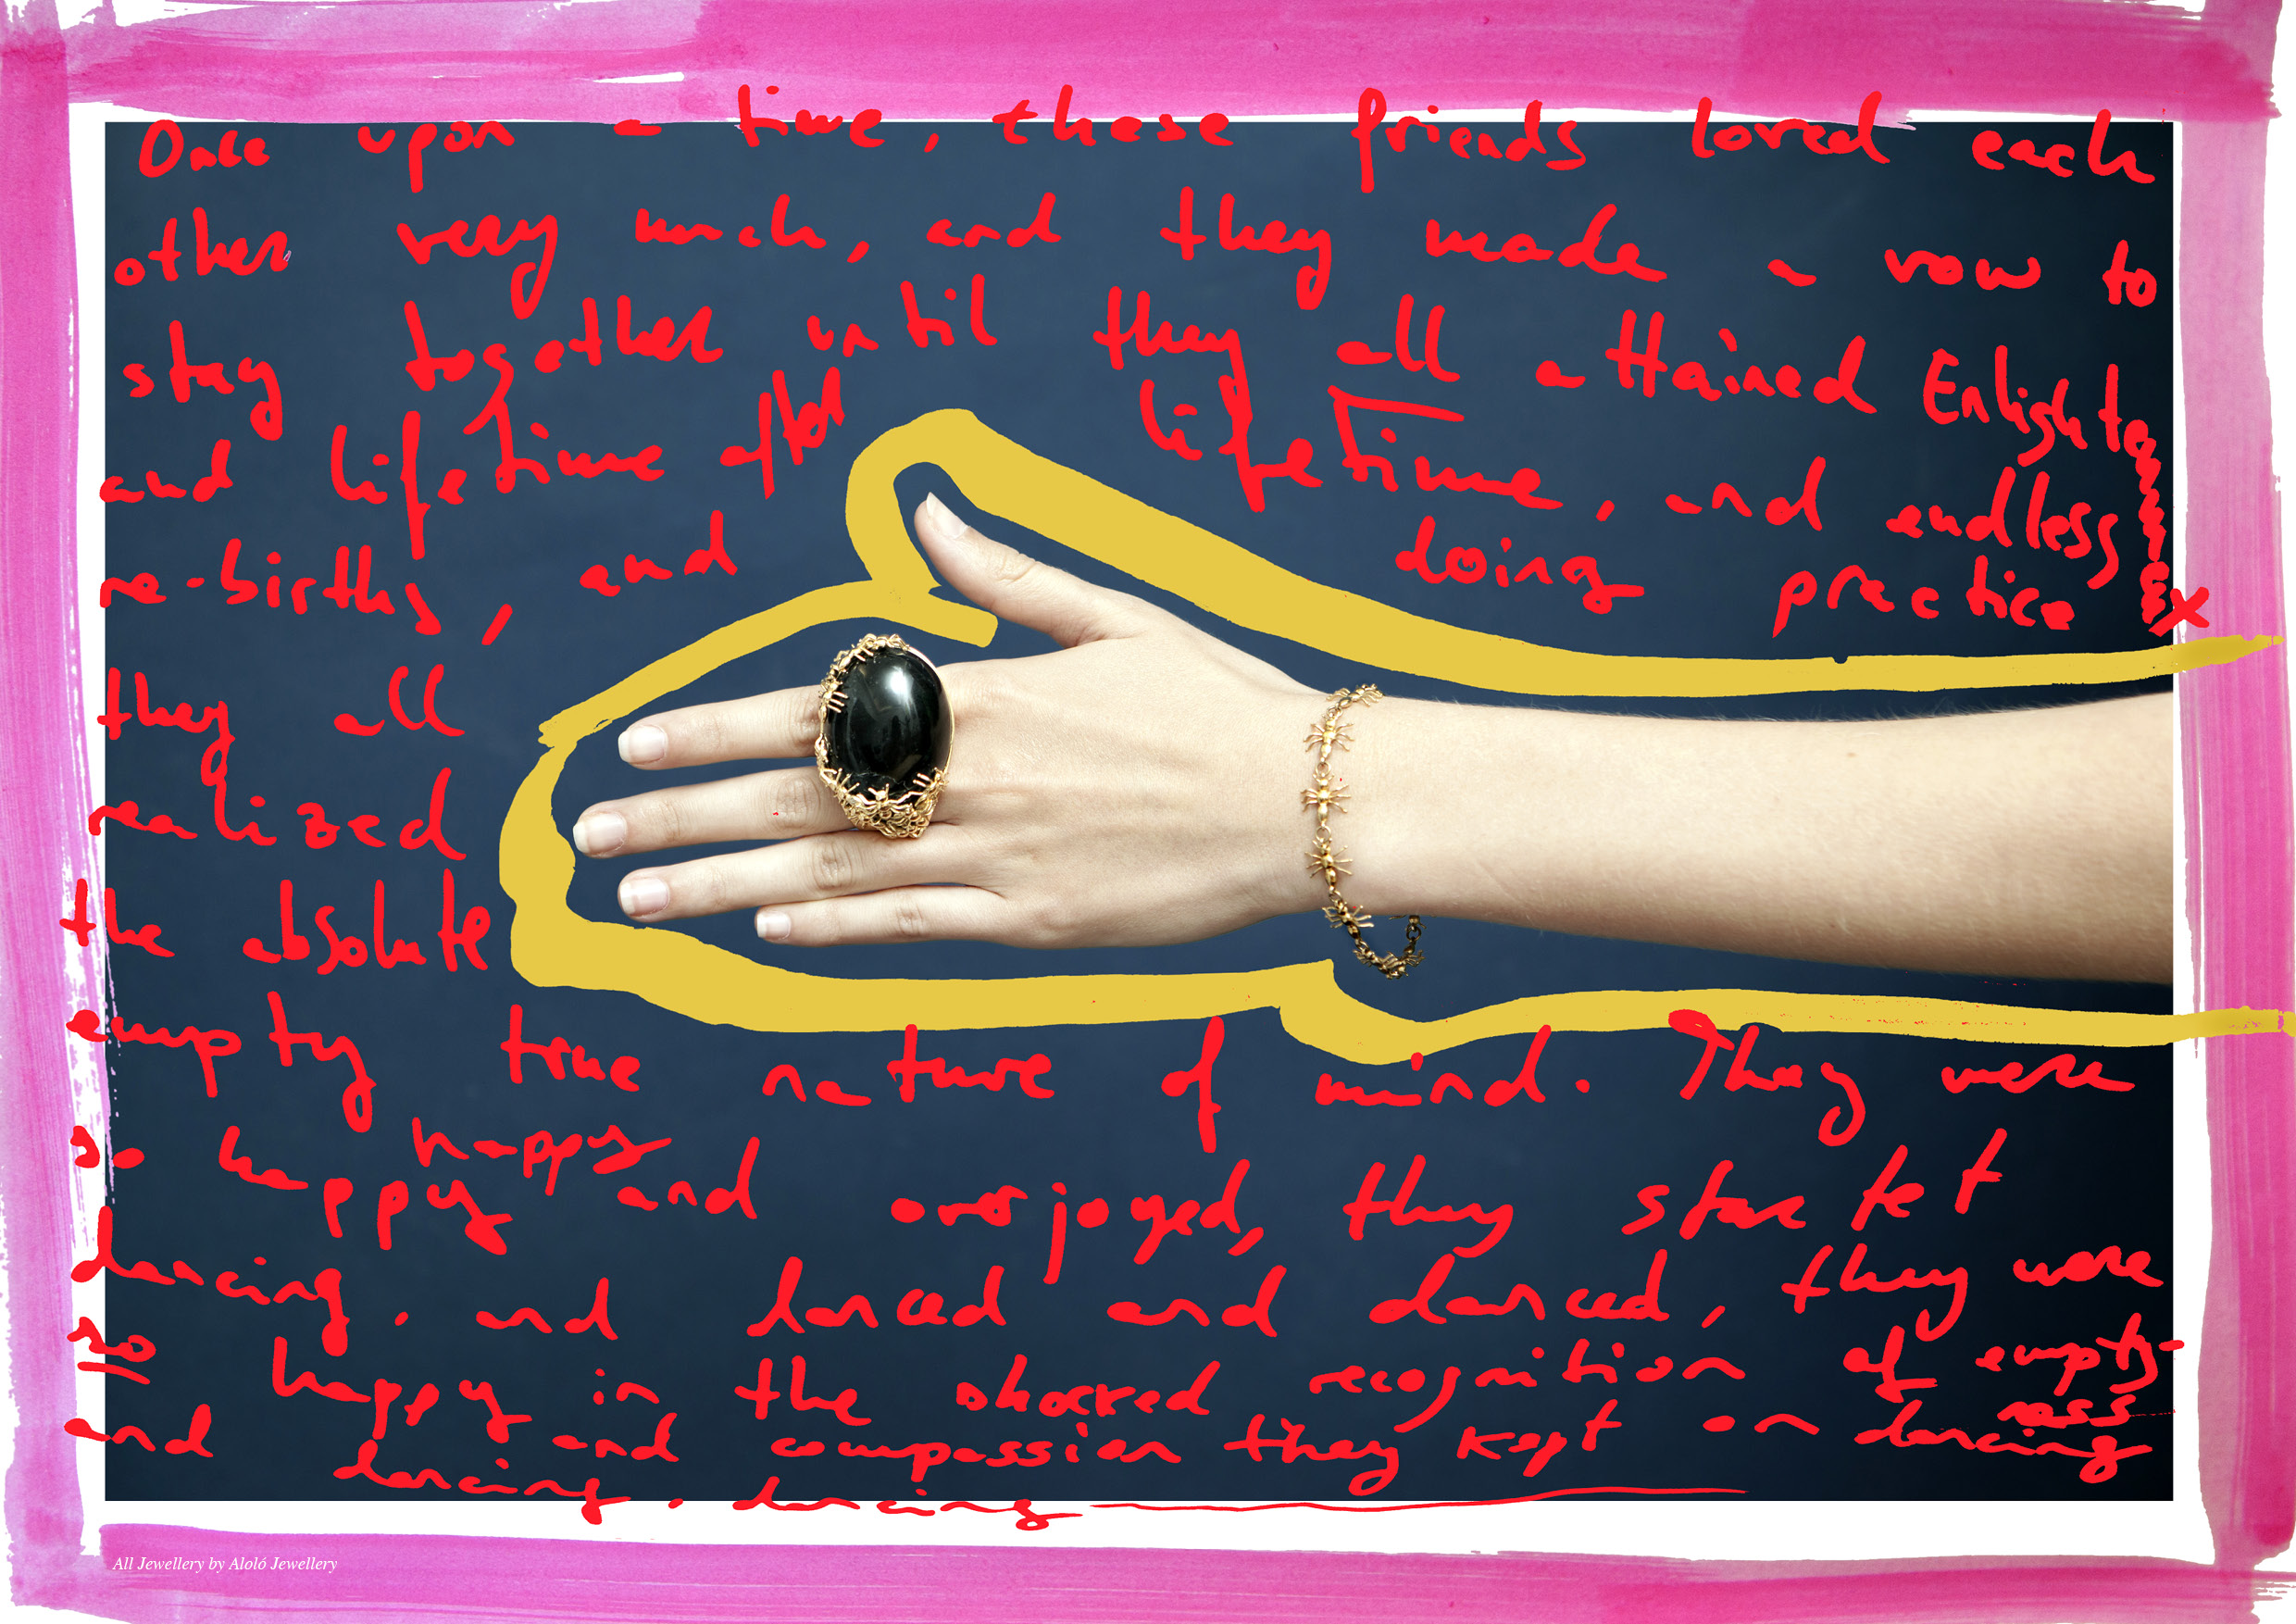 Once upon a time, these friends loved each
other very much, and they made a vow to
stay together until they all attained Enlightenment
and lifetime after lifetime, and endless
re-births, and doing practice
they all
realized
the absolute
empty true nature of mind. They were
so happy happy and overjoyed, they startet
dancing, and danced and danced, they were
so happy in the shared recognition of empty-
ness
and compassion they kept on dancing
and dancing, dancing
All Jewellery by Aloló Jewellery